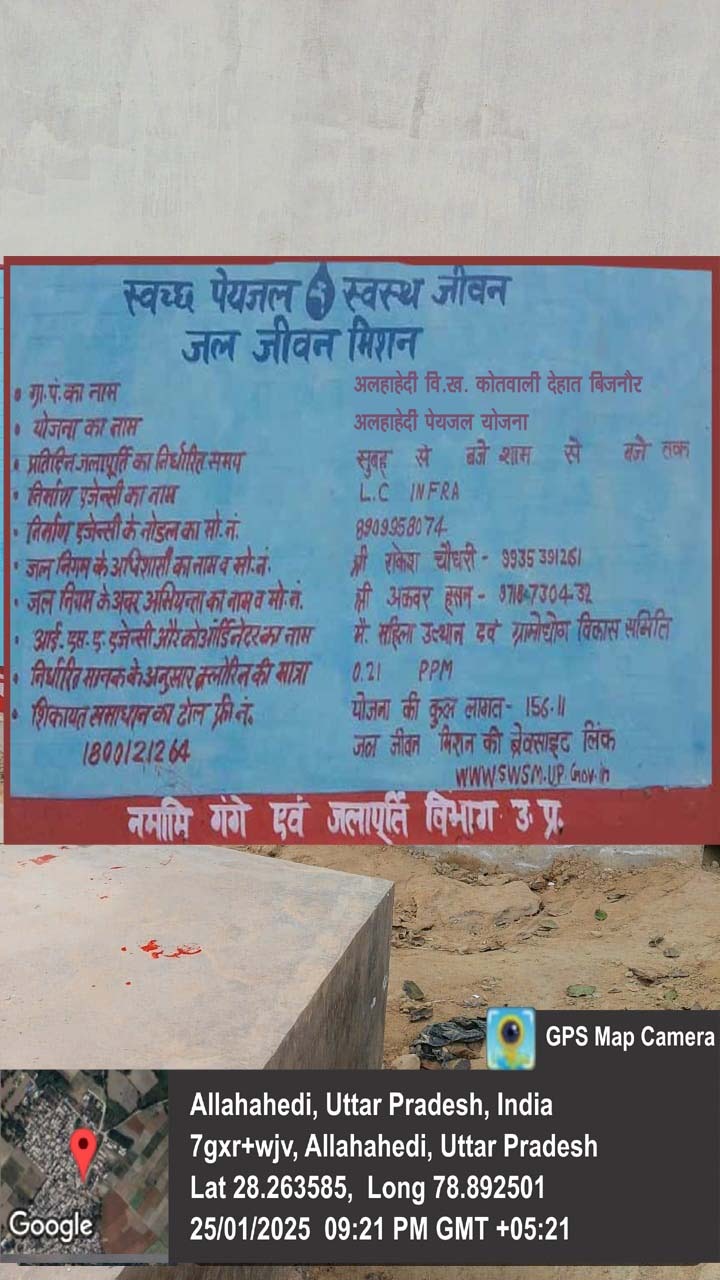 स्वच्छ पेयजल स्वस्थ जीवन
जल जीवन मिशन
• ग्रा.पं.का नाम अलहाहेदी वि.ख. कोतवाली देहात बिजनौर
• योजना का नाम अलहाहेदी पेयजल योजना
• प्रतिदिन जलापूर्ति का निर्धारित समय सुबह से बजे शाम से बजे तक
• निर्माण एजेन्सी का नाम L.C INFRA
• निर्माण एजेन्सी के नोडल का मो.नं. 8909958074
• जल निगम के अधिशासी का नाम व मो.नं. श्री राकेश चौधरी - 9935391261
• जल निगम के अवर अभियन्ता का नाम व मो.नं. श्री अकबर हसन - 9718-7304-32
• आई.एस.ए. एजेन्सी और कोऑर्डिनेटर का नाम मै. महिला उत्थान एवं ग्रामोद्योग विकास समिति
• निर्धारित मानक के अनुसार क्लोरिन की मात्रा 0.21 PPM
• शिकायत समाधान का टोल फ्री नं. योजना की कुल लागत - 156.11
1800121264 जल जीवन मिशन की बेवसाइट लिंक
WWW.SWSM.UP.Gov.in
नमामि गंगे एवं जलापूर्ति विभाग उ. प्र.
GPS Map Camera
Allahahedi, Uttar Pradesh, India
7gxr+wjv, Allahahedi, Uttar Pradesh
Lat 28.263585, Long 78.892501
25/01/2025 09:21 PM GMT +05:21
Google